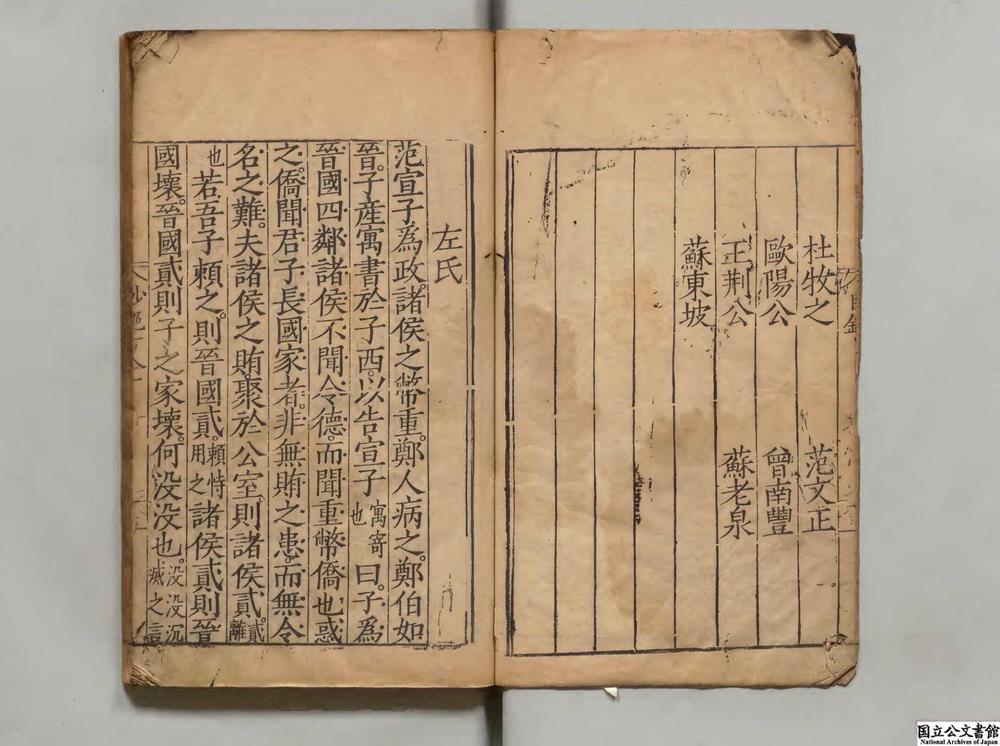 杜牧之 范文正
歐陽公 曾南豐
王荆公 蘇老泉
蘇東坡
左氏
范宣子為政。諸侯之幣重。鄭人病之。鄭伯如
晉。子產寓書於子西。以告宣子寓寄也曰。子為
晉國四鄰諸侯不聞令德。而聞重幣僑也惑
之。僑聞君子長國家者。非無賄之患。而無令
名之難。夫諸侯之賄。聚於公室。則諸侯貳。貳離
也若吾子賴之。則晉國貳。賴恃用之諸侯貳則晉
國壞。晉國貳則子之家壞。何没没也。没没沉滅之言
国立公文書館
National Archives of Japan